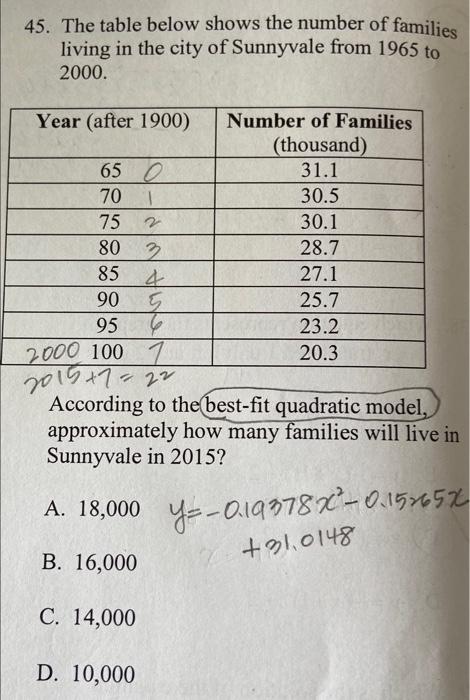 45. The table below shows the number of families
living in the city of Sunnyvale from 1965 to
2000.
Year (after 1900) Number of Families
(thousand)
65 0 31.1
70 1 30.5
75 2 30.1
80 3 28.7
85 4 27.1
90 5 25.7
95 6 23.2
2000 100 7 20.3
2015+7=22
According to the best-fit quadratic model,
approximately how many families will live in
Sunnyvale in 2015?
A. 18,000 y=-0.19378x²-0.15265x
+31.0148
B. 16,000
C. 14,000
D. 10,000